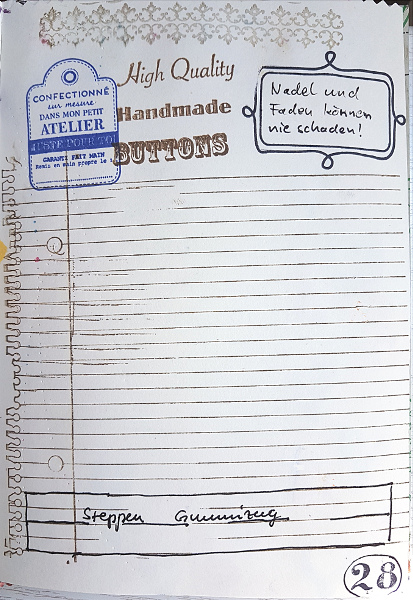 CONFECTIONNÉ
sur mesure
DANS MON PETIT
ATELIER
JUSTE POUR TOI
GARANTI FAIT MAIN
Remis en main propre le
High Quality
Handmade
BUTTONS
Nadel und
Faden können
nie schaden!
Steppen Gummizug
28